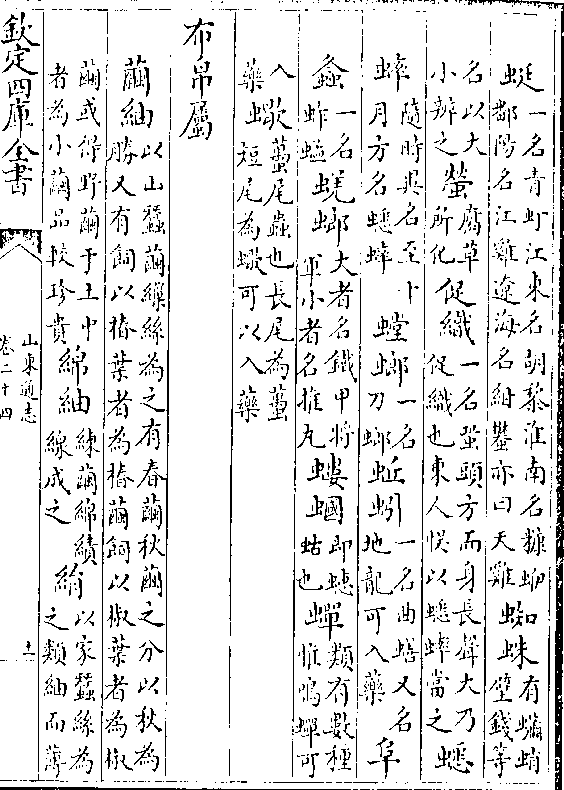 蜓一名青虰江東名胡黎淮南名糠蛜鄱陽名江雞遼海名紺蠜亦曰天雞蜘蛛有蠨蛸壁錢等
名以大小辨之螢腐草所化促織一名蛩頭方而身長聲大乃促織也東人悞以蟋蟀當之蟋
蟀隨時異名至十月方名蟋蟀螳螂一名刀螂蚯蚓一名曲蟮又名地龍可入藥阜
螽一名蚱蜢蜣螂大者名鐵甲將軍小者名推丸螻蟈即蟪蛄也蟬類有數種惟鳴蟬可
入藥蠍蠆尾蟲也長尾為蠆短尾為蠍可以入藥
布帛屬
繭紬以山蠶繭繰絲為之有春繭秋繭之分以秋為勝又有飼以椿葉者為椿繭飼以椒葉者為椒
繭或得野繭于土中者為小繭品較珍貴綿紬練繭綿績線成之絹以家蠶絲為之類紬而薄
欽定四庫全書
山東通志
卷二十四
十一